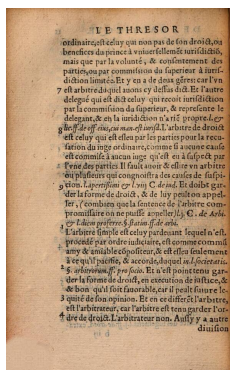 LE THRESOR
ordinaire, est celuy qui non pas de son droict, ou
benefices du prince à vniuersellement iurisdictiõ,
mais que par la volunté, & consentement des
parties, ou par commission du superieur à iurisdiction
limitée. Et y en a de deux gẽres: car l'vn
7 est arbitre duquel auons cy dessus dict. Et l'autre
delegué qui est dict celuy qui recoit iurisdiction
par la commission du superieur, & represente le
delegant, & en la iuridiction n'a riẽ propre. l. & g
8 L'arbitre de droict
est celuy qui est esleu par les parties pour la recusation
du iuge ordinaire, comme si aucune cause
est commise à aucun iuge qu'est ou à suspect par
l'vne des parties. Il faut alors & eslire vn arbitre
ou plusieurs qui cognoistra des causes de suspicion.
Et doibt garder
la forme de droict, & de luy peut on appeller,
combien que la sentence de l'arbitre compromissaire
on ne puisse appeller C. de Arbi.
L'arbitre simple est celuy pardeuant lequel n'est
procedé par ordre iudiciaire, est comme commũ
amy & amiable cõpositeur, & est esleu seulement
à ce qu'il pacifie, & accorde, duquel in l. societatis.
§. arbitrorum. ff. pro socio. Et n'est point tenu garder
la forme de droict, en execution de iustice, de
& bon qu'il soit fauorable, car il peut suiure l'equité
de son opinion. Et en ce differẽt l'arbitre,
est l'arbitrateur, car l'arbitre est tenu garder l'ordre
de droict. L'arbitrateur non. Aussi y a autre
diuision